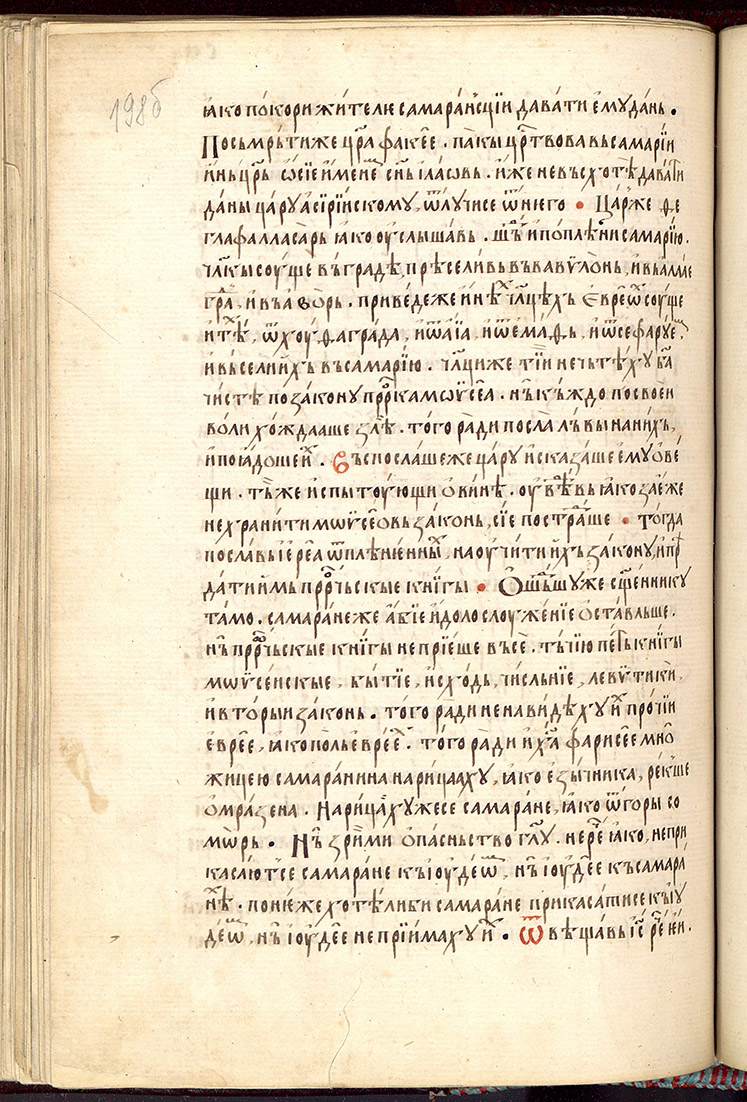 198б
ꙗко покори жителѥ самаранⸯсціи давати ѥмꙋ дань.
По сьмрьти же цр҃а факее. пакы црⷭ҇твова вь самаріи
инь цр҃ь ѡсіе именеⷨ сн҃ь іласⷪвь. иже не вьсхотѣ давати
даны царꙋ асіріискомꙋ, ѿлꙋчисе ѿ него • Царь же ѳе
глафалласарь ꙗко оуслышавь. шⷣь и поплѣни самарію.
чл҃кы соущее вь градѣ, прѣселивь вь вавѵлѡнь, и вь аллае
граⷣ, и вь аворь. приведе же инѣⷯ чл҃цѣхь ѥвреѡⷨ соуще
и тѣⷯ, ѿ хоуѳа града, и ѿ аіа, и ѿ емаѳь, и ѿ сефарꙋеⷨ,
и вьсели ихь вь самарію. чл҃ци же тїи не чьтѣхꙋ ба҃
чистѣ по законꙋ прⷪрⷪка мѡѵсеа. нь къждо по своеи
воли хождааше злѣ. того ради посла львы на нихь,
и поꙗдоше иⷯ. Вьспослаше же царꙋ и сказаше емꙋ ѡ ве
щи. тьⷤже испытоующи ѡ винѣ. оувѣⷣвь ꙗко за еже
не хранити мѡѵсеѡвь законь, сіе постраⷣше • тогда
пославь іереа ѿ плѣнѥнныⷯ, наоучити ихь законꙋ, и прⷣ
дати имь прⷪрⷪчьскые книгы • Ошьⷣшꙋ же сщ҃енникꙋ
тамо. самаране же абіе идолослоуженіе оставльше.
нь прⷪрⷪчьскые книгы не пріеше вьсе. тьчію петь книгы
мѡѵсеискые, бытіе, исходь, числьніе, левѵтикь,
и вторыи законь. того ради ненавидѣхꙋ иⷯ прочіи
еврее, ꙗко польевреѥ. того ради и хⷭ҇а фарисее мно
жицею самаранина нарицаахꙋ, ꙗко езычника, рекше
омразена. Нарицахꙋ же се самаране, ꙗко ѿ горы со
мѡрь • Нь зрⷥими опасньство гл҃ꙋ. не реⷱ ꙗко, непри
касаютсе самаране кь іоудеѡⷨ, нь іоудее кь самара
нѣⷨ. понѥже хотѣли би самаране прикасатисе кь іꙋ
деѡⷨ, нь іоудее не пріимахꙋ иⷯ • Ѿвѣщавь іс҃ реⷱ еи.